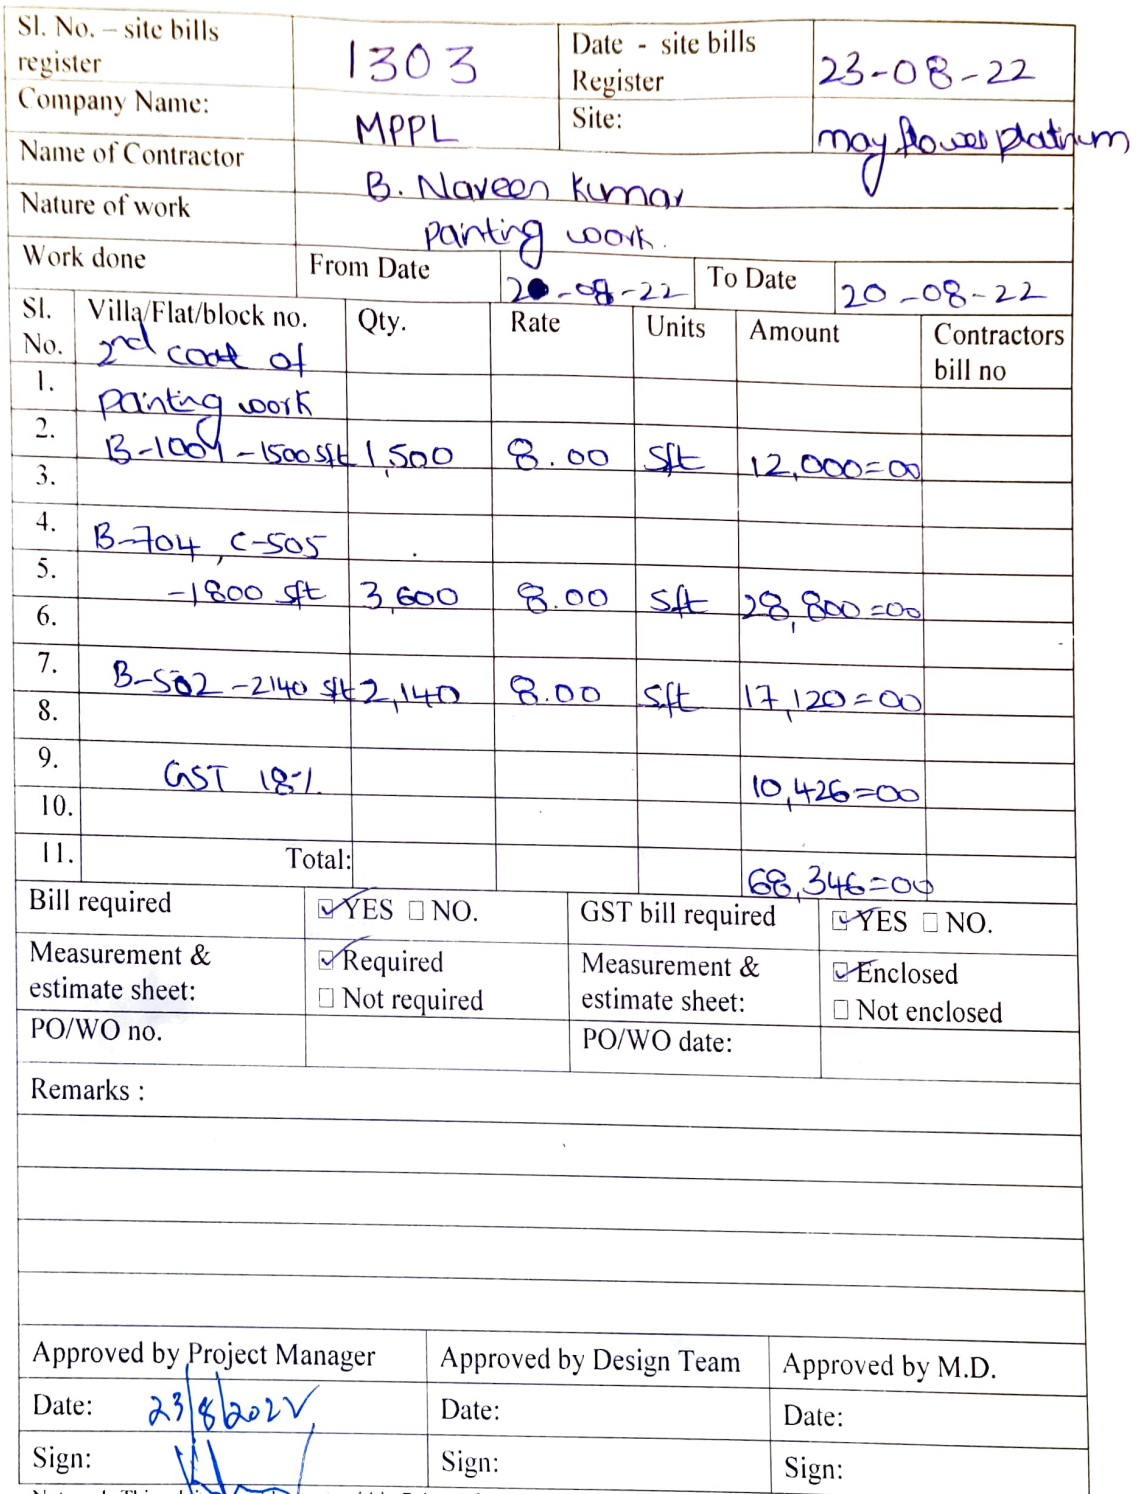 Sl. No. – site bills register 1303 Date - site bills Register 23-08-22
Company Name: MPPL Site: mayflower platinum
Name of Contractor B. Naveen Kumar
Nature of work Painting work.
Work done From Date 20-08-22 To Date 20-08-22
Sl. No. Villa/Flat/block no. Qty. Rate Units Amount Contractors bill no
2nd coat of
1. Painting work
2. B-1004 -1500 Sft 1,500 8.00 Sft 12,000=00
3.
4. B-704, C-505
5. -1800 sft 3,600 8.00 Sft 28,800=00
6.
7. B-502 -2140 sft 2,140 8.00 Sft 17,120=00
8.
9. GST 18% 10,426=00
10.
11. Total: 68,346=00
Bill required YES NO. GST bill required YES NO.
Measurement & estimate sheet: Required Not required Measurement & estimate sheet: Enclosed Not enclosed
PO/WO no. PO/WO date:
Remarks :
Approved by Project Manager Approved by Design Team Approved by M.D.
Date: 23/8/2022 Date: Date:
Sign: Sign: Sign: